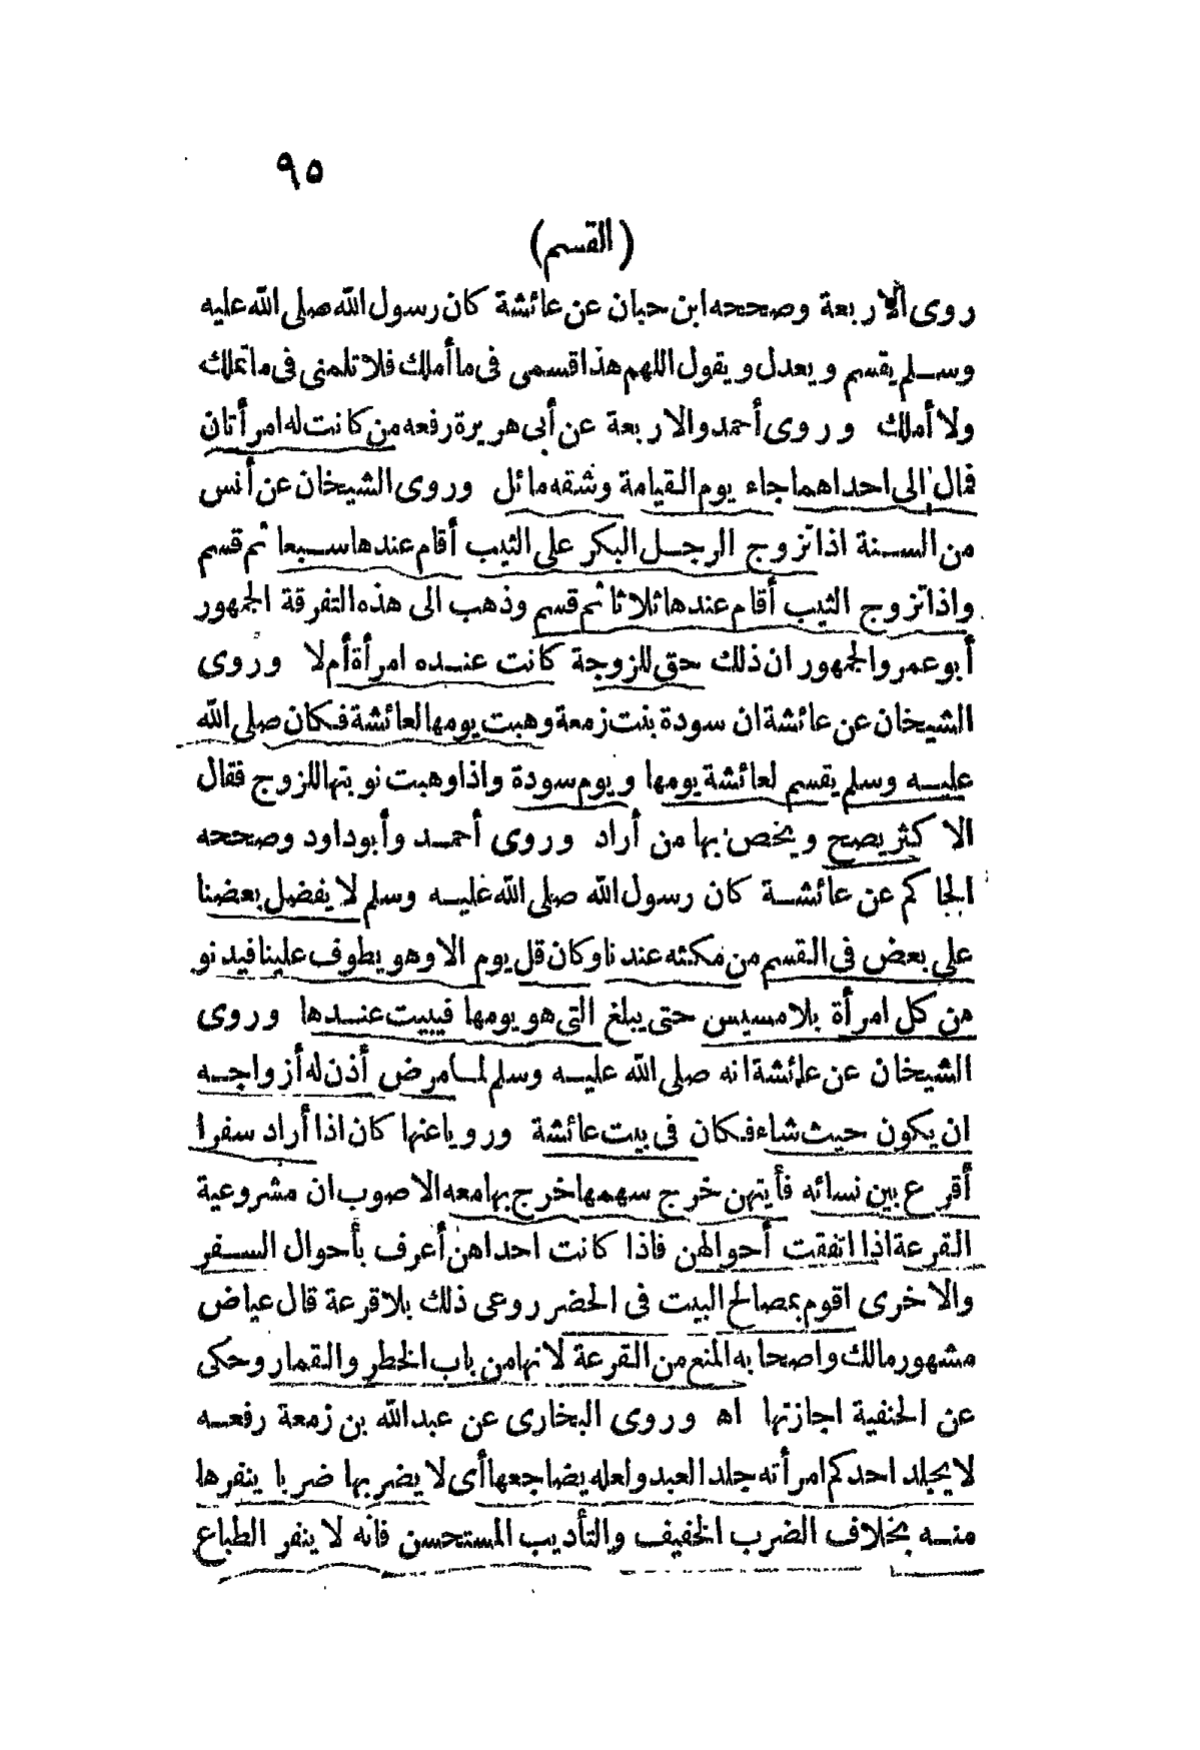 ٩٥
(القسم)
روى الاربعة وصححه ابن حبان عن عائشة كان رسول الله صلى الله عليه
وسلم يقسم ويعدل ويقول اللهم هذا قسمى فى ما أملك فلا تلمنى فى ما تملك
ولا أملك وروى أحمد والاربعة عن أبى هريرة رفعه من كانت له امرأتان
فمال الى احداهما جاء يوم القيامة وشقه مائل وروى الشيخان عن أنس
من السنة اذا تزوج الرجل البكر على الثيب أقام عندها سبعا ثم قسم
واذا تزوج الثيب أقام عندها ثلاثا ثم قسم وذهب الى هذه التفرقة الجمهور
أبو عمر والجمهور ان ذلك حق للزوجة كانت عنده امرأة أم لا وروى
الشيخان عن عائشة ان سودة بنت زمعة وهبت يومها لعائشة فكان صلى الله
عليه وسلم يقسم لعائشة يومها ويوم سودة واذا وهبت نوبتها للزوج فقال
الاكثر يصح ويخص بها من أراد وروى أحمد وأبو داود وصححه
الحاكم عن عائشة كان رسول الله صلى الله عليه وسلم لا يفضل بعضنا
على بعض فى القسم من مكثه عندنا وكان قل يوم الا وهو يطوف علينا فيدنو
من كل امرأة بلا مسيس حتى يبلغ التى هو يومها فيبيت عندها وروى
الشيخان عن عائشة انه صلى الله عليه وسلم لما مرض أذن له أزواجه
ان يكون حيث شاء فكان فى بيت عائشة ورويا عنها كان اذا أراد سفرا
أقرع بين نسائه فأيتهن خرج سهمها خرج بها معه الاصوب ان مشروعية
القرعة اذا اتفقت أحوالهن فاذا كانت احداهن أعرف بأحوال السفر
والاخرى اقوم بمصالح البيت فى الحضر روعى ذلك بلا قرعة قال عياض
مشهور مالك واصحابه المنع من القرعة لانها من باب الخطر والقمار وحكى
عن الحنفية اجازتها اه وروى البخارى عن عبد الله بن زمعة رفعه
لا يجلد احدكم امرأته جلد العبد ولعله يضاجعها أى لا يضربها ضربا ينفرها
منه بخلاف الضرب الخفيف والتأديب المستحسن فانه لا ينفر الطباع